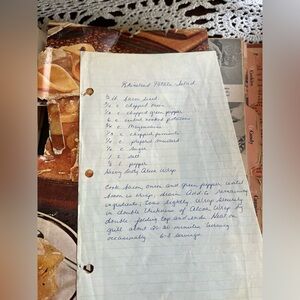 Potato Salad
½ lb bacon diced
½ c chopped onion
½ c chopped green pepper
6 c cubed cooked potatoes
c Mayonnaise
c chopped pimiento
c prepared mustard
c Sugar
1 t salt
t pepper
Heavy Duty Alcoa Wrap
Cook bacon, onion and green pepper until
bacon is crisp, drain. Add to remaining
ingredients; toss lightly. Wrap securely
in double thickness of Alcoa Wrap by
double-folding top and ends. Heat on
grill about 20-30 minutes turning
occasionally. 6-8 servings